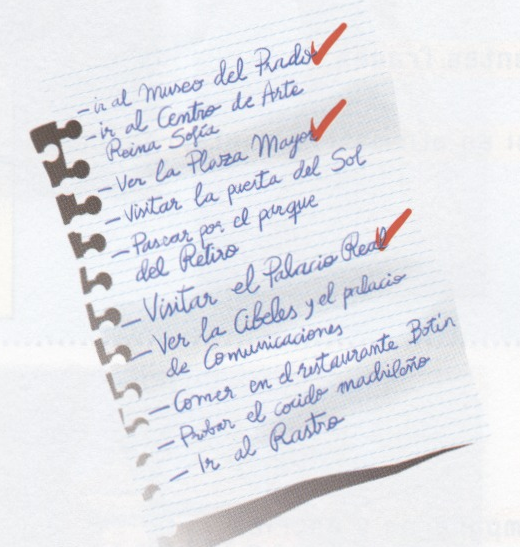 - ir al Museo del Prado
- ir al Centro de Arte
Reina Sofía
- Ver la Plaza Mayor
- Visitar la puerta del Sol
- Pasear por el parque
del Retiro
- Visitar el Palacio Real
- Ver la Cibeles y el palacio
de Comunicaciones
- Comer en el restaurante Botín
- Probar el cocido madrileño
- Ir al Rastro